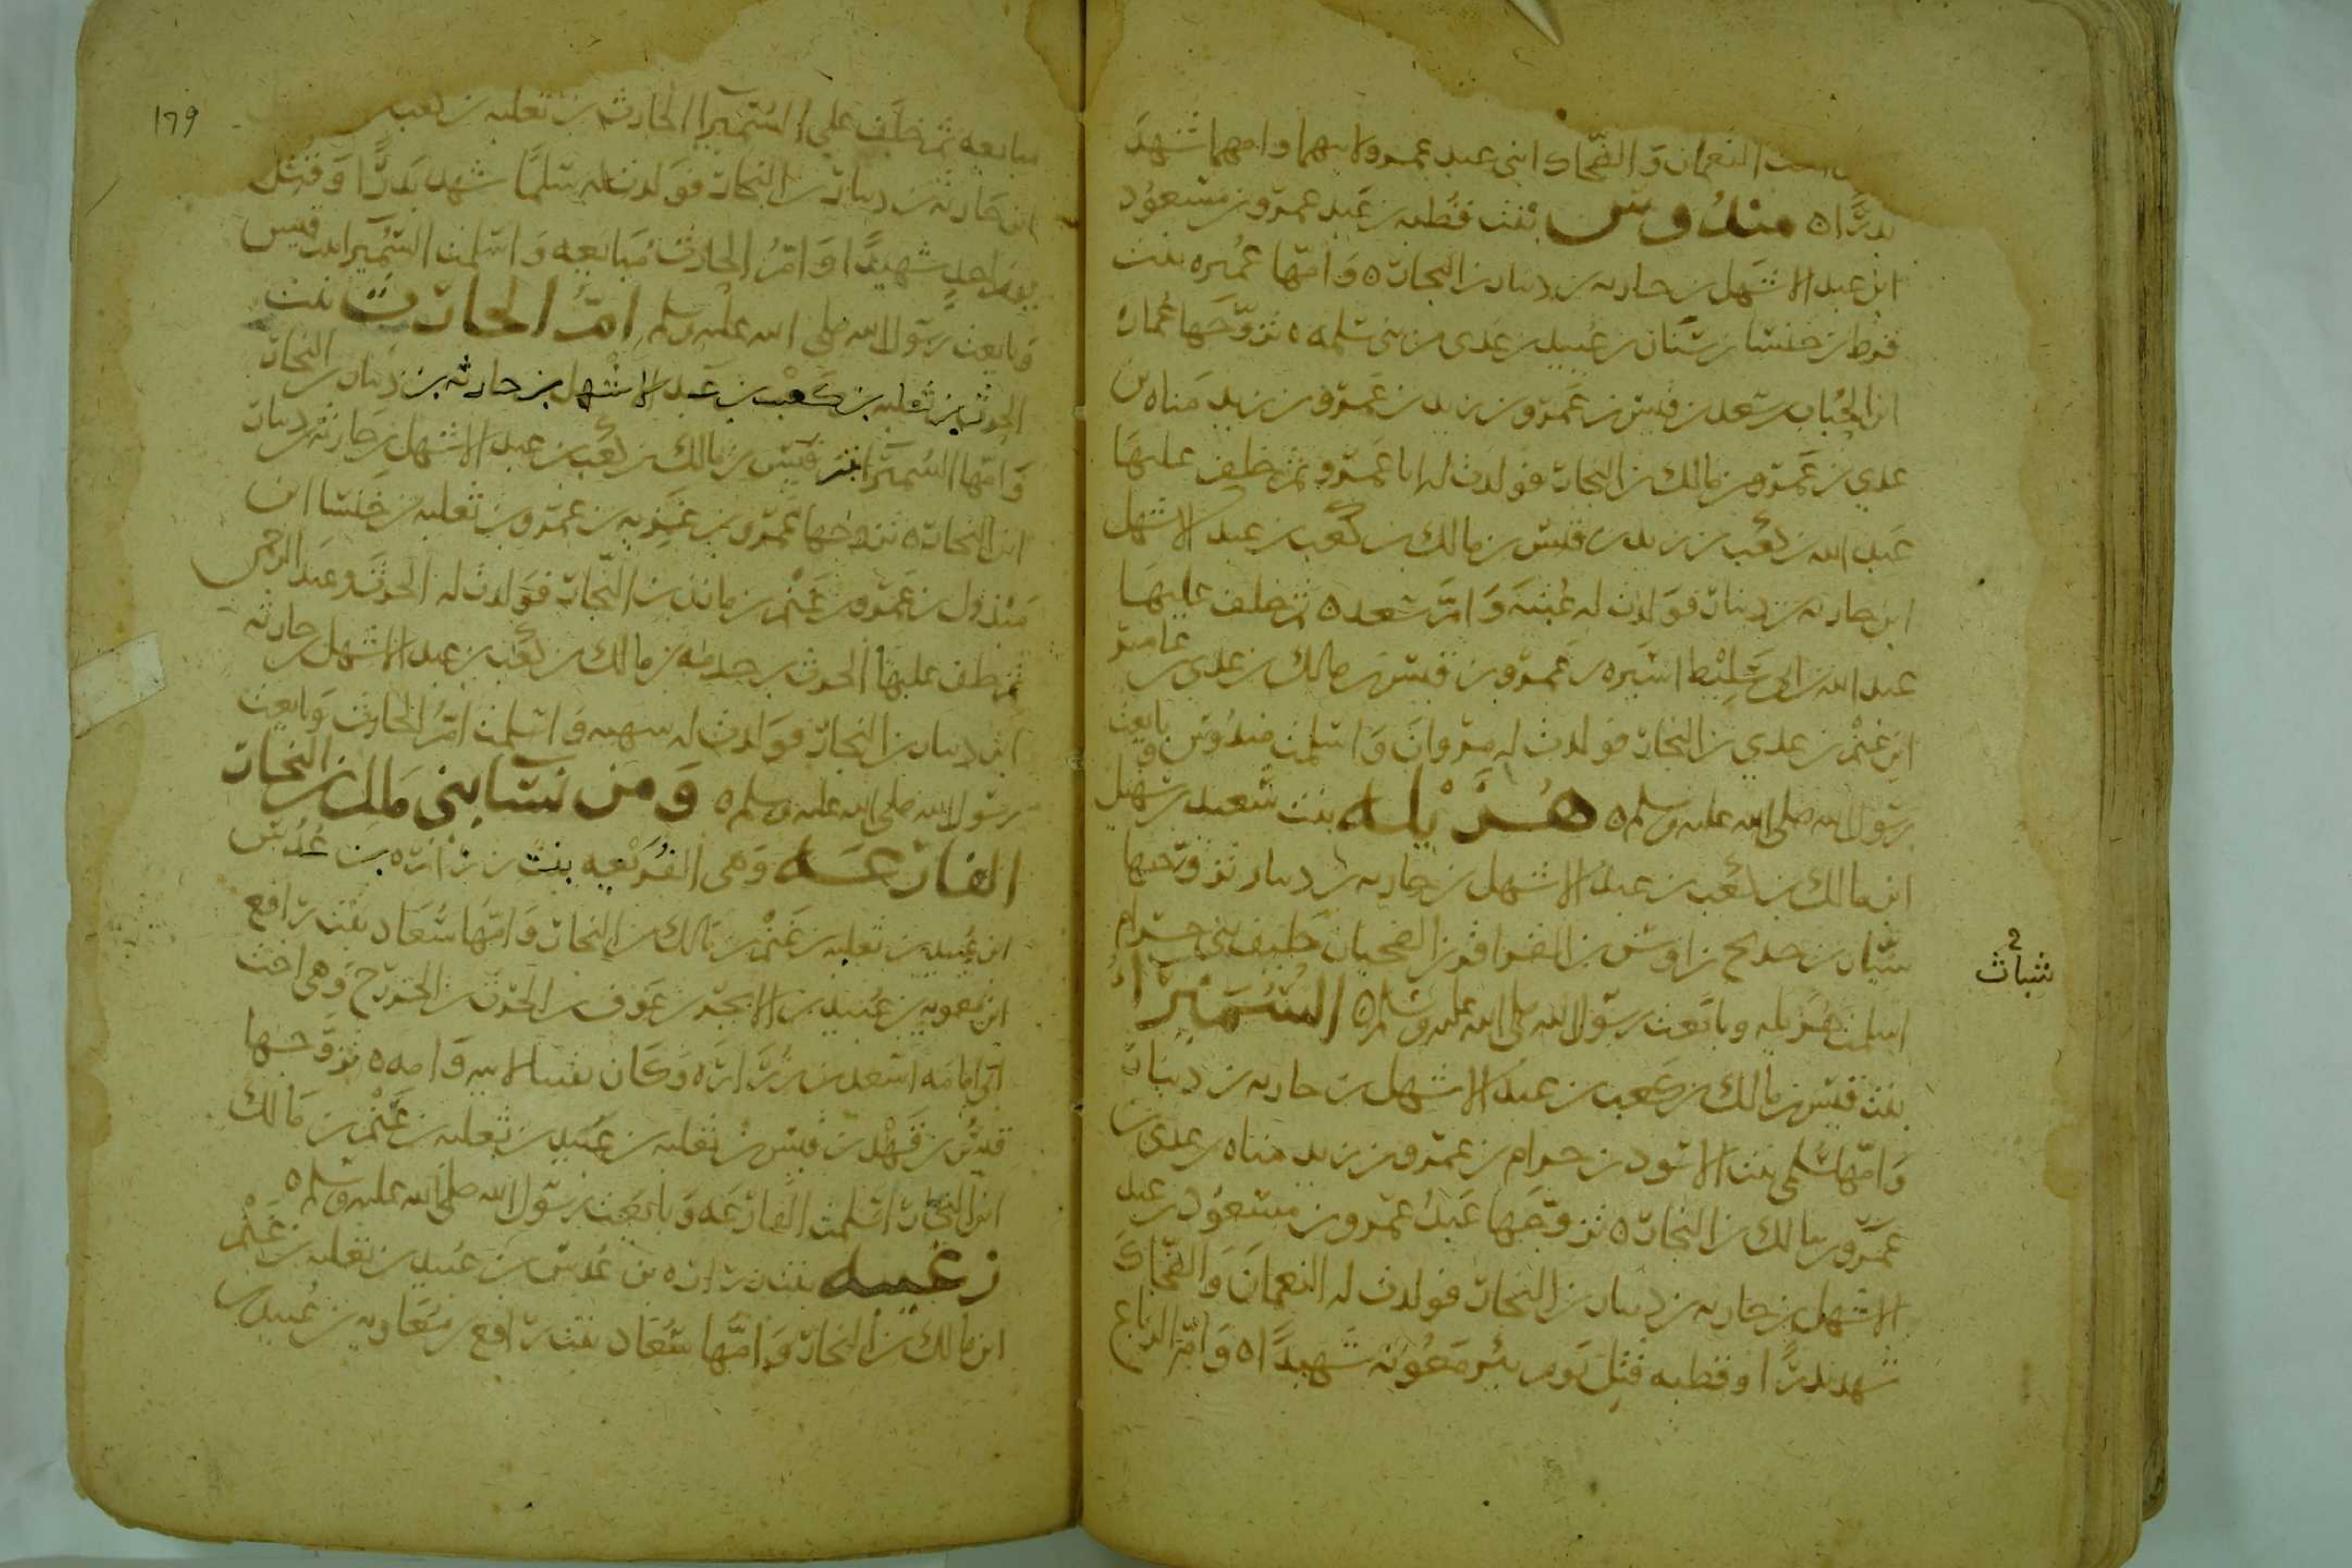 النعمان والضحاك ابنى عبد عمرو لابيهما وامهما شهدا
بدرا ٥ مندوس بنت قطبه بن عبد عمرو بن مسعود
ابن عبد الاشهل بن حارثه بن دينار بن النجار ٥ وامها عميره بنت
قرط بن خنسا بن سنان بن عبيد بن عدى من بنى سلمه ٥ تزوجها عماره
ابن الحباب بن سعد بن قيس بن عمرو بن زيد بن عمرو بن زيد مناه بن
عدي بن عمرو بن مالك بن النجار فولدت له ابا عمرو ثم خلف عليها
عبد الله بن كعب بن زيد بن قيس بن مالك بن كعب بن عبد الاشهل
ابن حارثه بن دينار فولدت له عتبه وام سعد ٥ ثم خلف عليها
عبد الله بن ابي سليط اسيره بن عمرو بن قيس بن مالك بن عدى بن عامر
ابن غنم بن عدي بن النجار فولدت له مروان واسلمت مندوس وبايعت
رسول الله صلى الله عليه وسلم ٥ هزيله بنت سعيد بن سهيل
ابن مالك بن كعب بن عبد الاشهل بن حارثه بن دينار تزوجها
شبات
بن حديج بن اوس بن القراقر بن الضحيان حليف بنى حرام
اسلمت هزيله وبايعت رسول الله صلى الله عليه وسلم ٥ السميرا
بنت قيس بن مالك بن كعب بن عبد الاشهل بن حارثه بن دينار
وامها سلمى بنت الاسود بن حرام بن عمرو بن زيد مناه بن عدى بن
عمرو بن مالك بن النجار ٥ تزوجها عبد عمرو بن مسعود بن عبد
الاشهل بن حارثه بن دينار بن النجار فولدت له النعمان والضحاك
شهدا بدرا وقطبه قتل يوم بئر معونه شهيدا ٥ وام الرياع
١٦٩
مبايعه ثم خلف على السميرا الحارث بن ثعلبه بن كعب
ابن حارثه بن دينار بن النجار فولدت له سليما شهد بدرا وقتل
يوم احد شهيدا وام الحارث مبايعه واسلمت السميرا بنت قيس
وبايعت رسول الله صلى الله عليه وسلم ام الحارث بنت
الحرث بن ثعلبه بن كعب بن عبد الاشهل بن حارثه بن دينار بن النجار
وامها السميرا بنت قيس بن مالك بن كعب بن عبد الاشهل بن حارثه بن دينار
ابن النجار ٥ تزوجها عمرو بن غزيه بن عمرو بن ثعلبه بن خنسا ابن
مبذول بن عمرو بن غنم بن مازن بن النجار فولدت له الحرث وعبد الرحمن
ثم خلف عليها الحرث بن خدمه بن مالك بن كعب بن عبد الاشهل بن حارثه
ابن دينار بن النجار فولدت له سهيمه واسلمت ام الحارث وبايعت
رسول الله صلى الله عليه وسلم ٥ ومن نسا بنى مالك بن النجار
الفارعه وهى الفريعه بنت زراره بن عدس
ابن عبيد بن ثعلبه بن غنم بن مالك بن النجار وامها سعاد بنت رافع
ابن معويه بن عبيد بن الابجر بن عوف بن الحرث بن الخزرج وهى اخت
ابى امامه اسعد بن زراره وكان نقيبا لابيه وامه ٥ تزوجها
قيس بن قهد بن قيس بن ثعلبه بن عبيد بن ثعلبه بن غنم بن مالك
ابن النجار اسلمت الفارعه وبايعت رسول الله صلى الله عليه وسلم ٥
زغيبه بنت زراره بن عدس بن عبيد بن ثعلبه بن غنم
ابن مالك بن النجار وامها سعاد بنت رافع بن معاويه بن عبيد بن